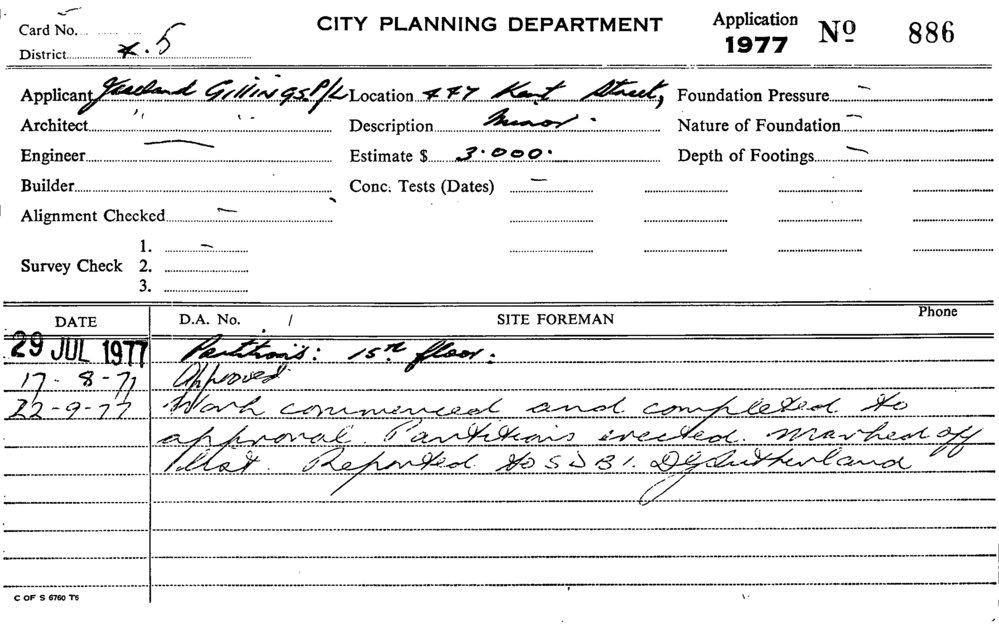 CITY PLANNING DEPARTMENT
Application 1977 Nº 886
Card No.
District 5
Applicant Gillings P/L Location 447 Kent Street, Foundation Pressure —
Architect " " Description Minor. Nature of Foundation —
Engineer — Estimate $ 3.000. Depth of Footings —
Builder Conc. Tests (Dates) —
Alignment Checked —
Survey Check 1. —
2.
3.
DATE D.A. No. / SITE FOREMAN Phone
29 JUL 1977 Partitions: 15th floor.
17-8-77 Approved
22-9-77 Work commenced and completed to
approval. Partitions erected. Marked off
list. Reported to S.D.B.I. D G Sutherland
C OF S 6760 T6